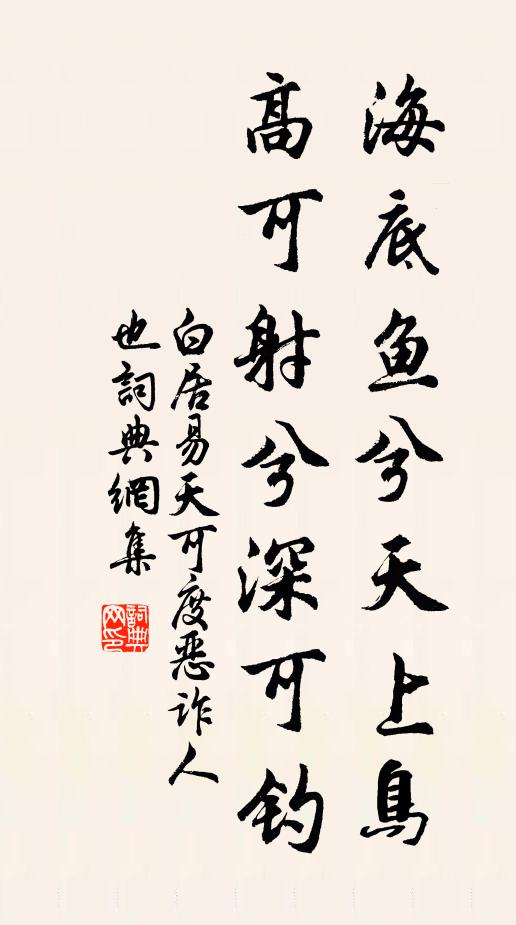 海底魚兮天上鳥
高可射兮深可釣
白居易天可度惡詐人
也詞典網集
詞典
网印